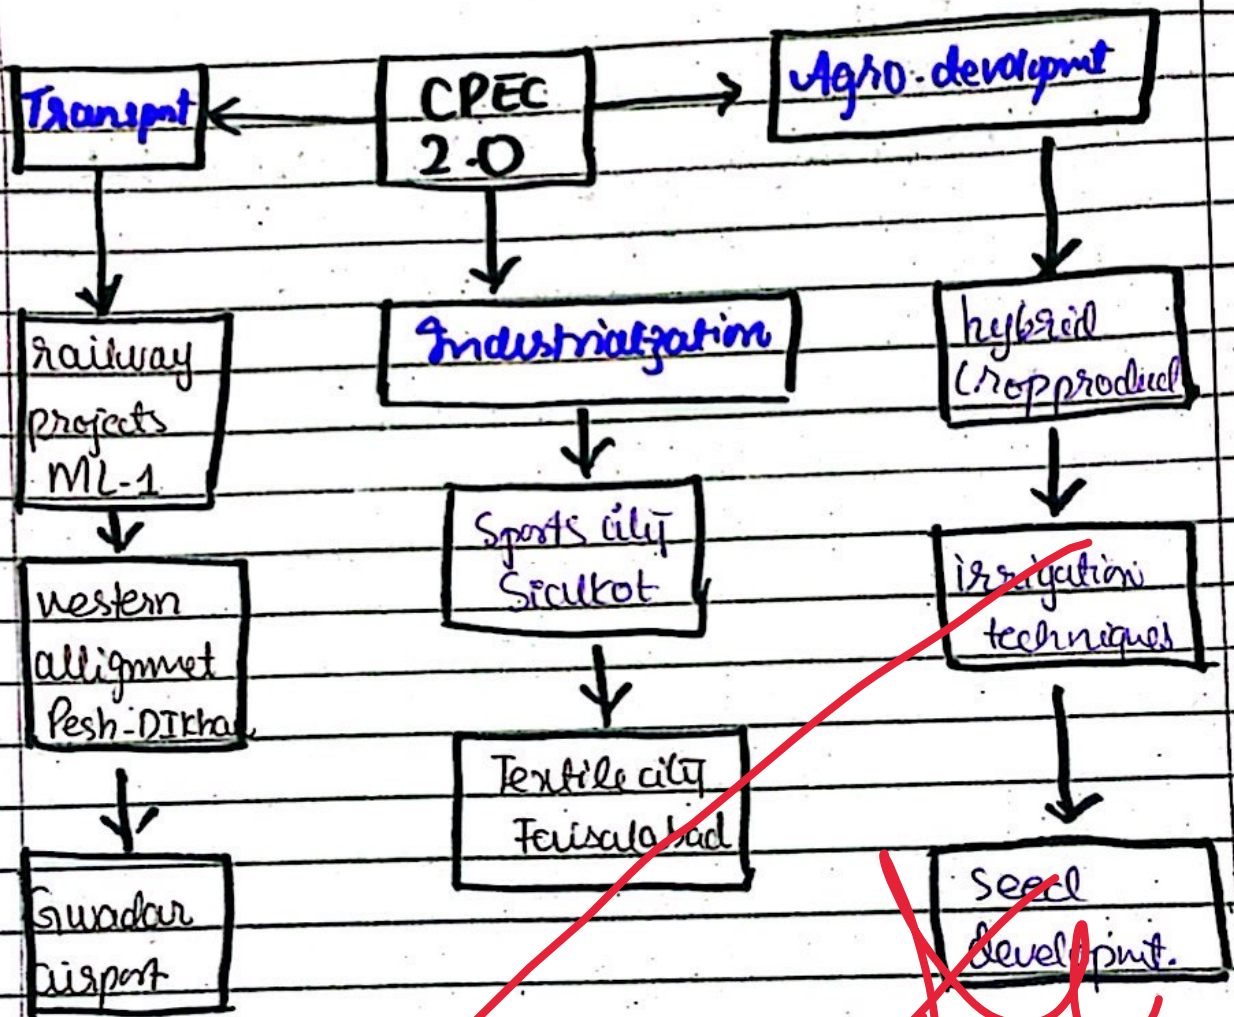 Transpnt
CPEC
2.0
Agro-devolopmt
railway
projects
ML-1
western
allignmet
Pesh-DIkhan
Gwadar
airport
Industrialization
Sports city
Sialkot
Textile city
Faisalabad
hybrid
crop product
irrigation
techniques
seed
developmt.